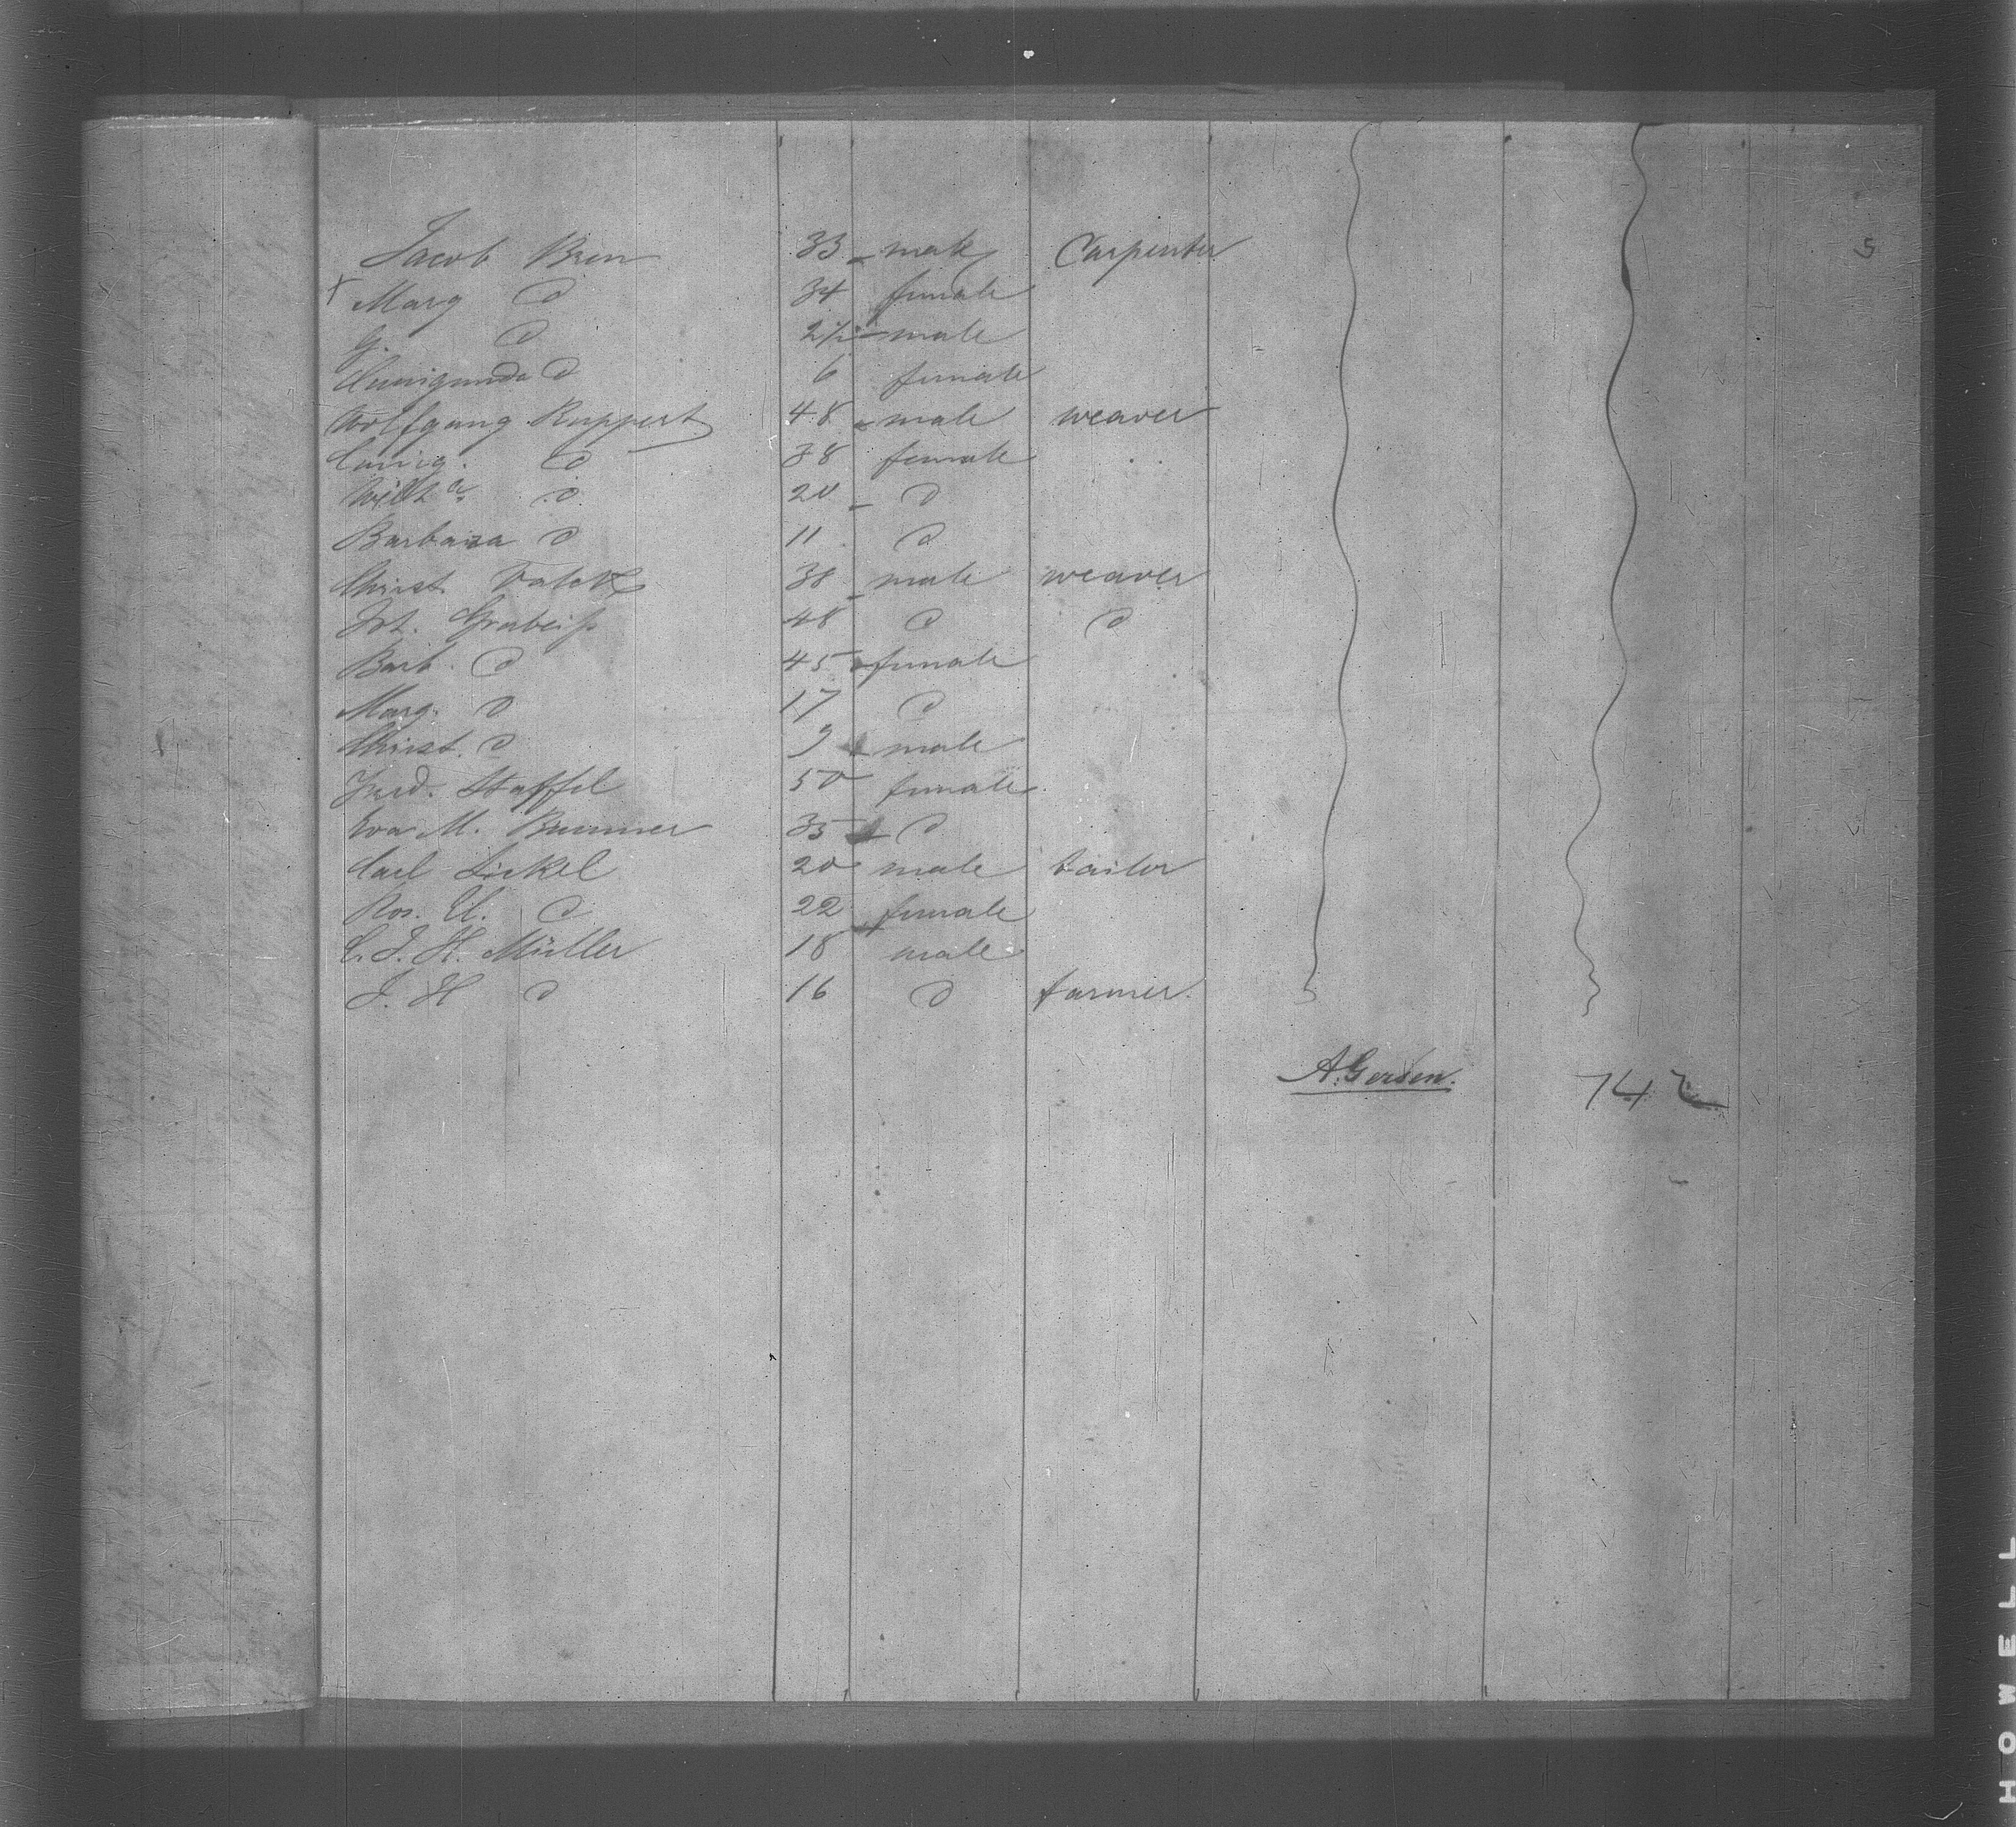 Jacob Bren 33 male Carpenter 5
Marg d 34 female
G. d 2 1/2 male
Cunigunda d 6 female
Wolfgang Ruppert 48 male weaver
Cunig. d 38 female
Wilh a d 20 d
Barbara d 11 d
Christ. 38 male weaver
Joh. Grabeiß 48 d d
Barb. d 45 female
Marg. d 17 d
Christ. d 9 male
Staffel 50 female
Eva M. Brunner 35 d
Carl Sickel 20 male tailor
Ros. El. d 22 female
C. J. H. Müller 18 male
J. H d 16 d farmer.
A. Gersen. 742
HOWELL